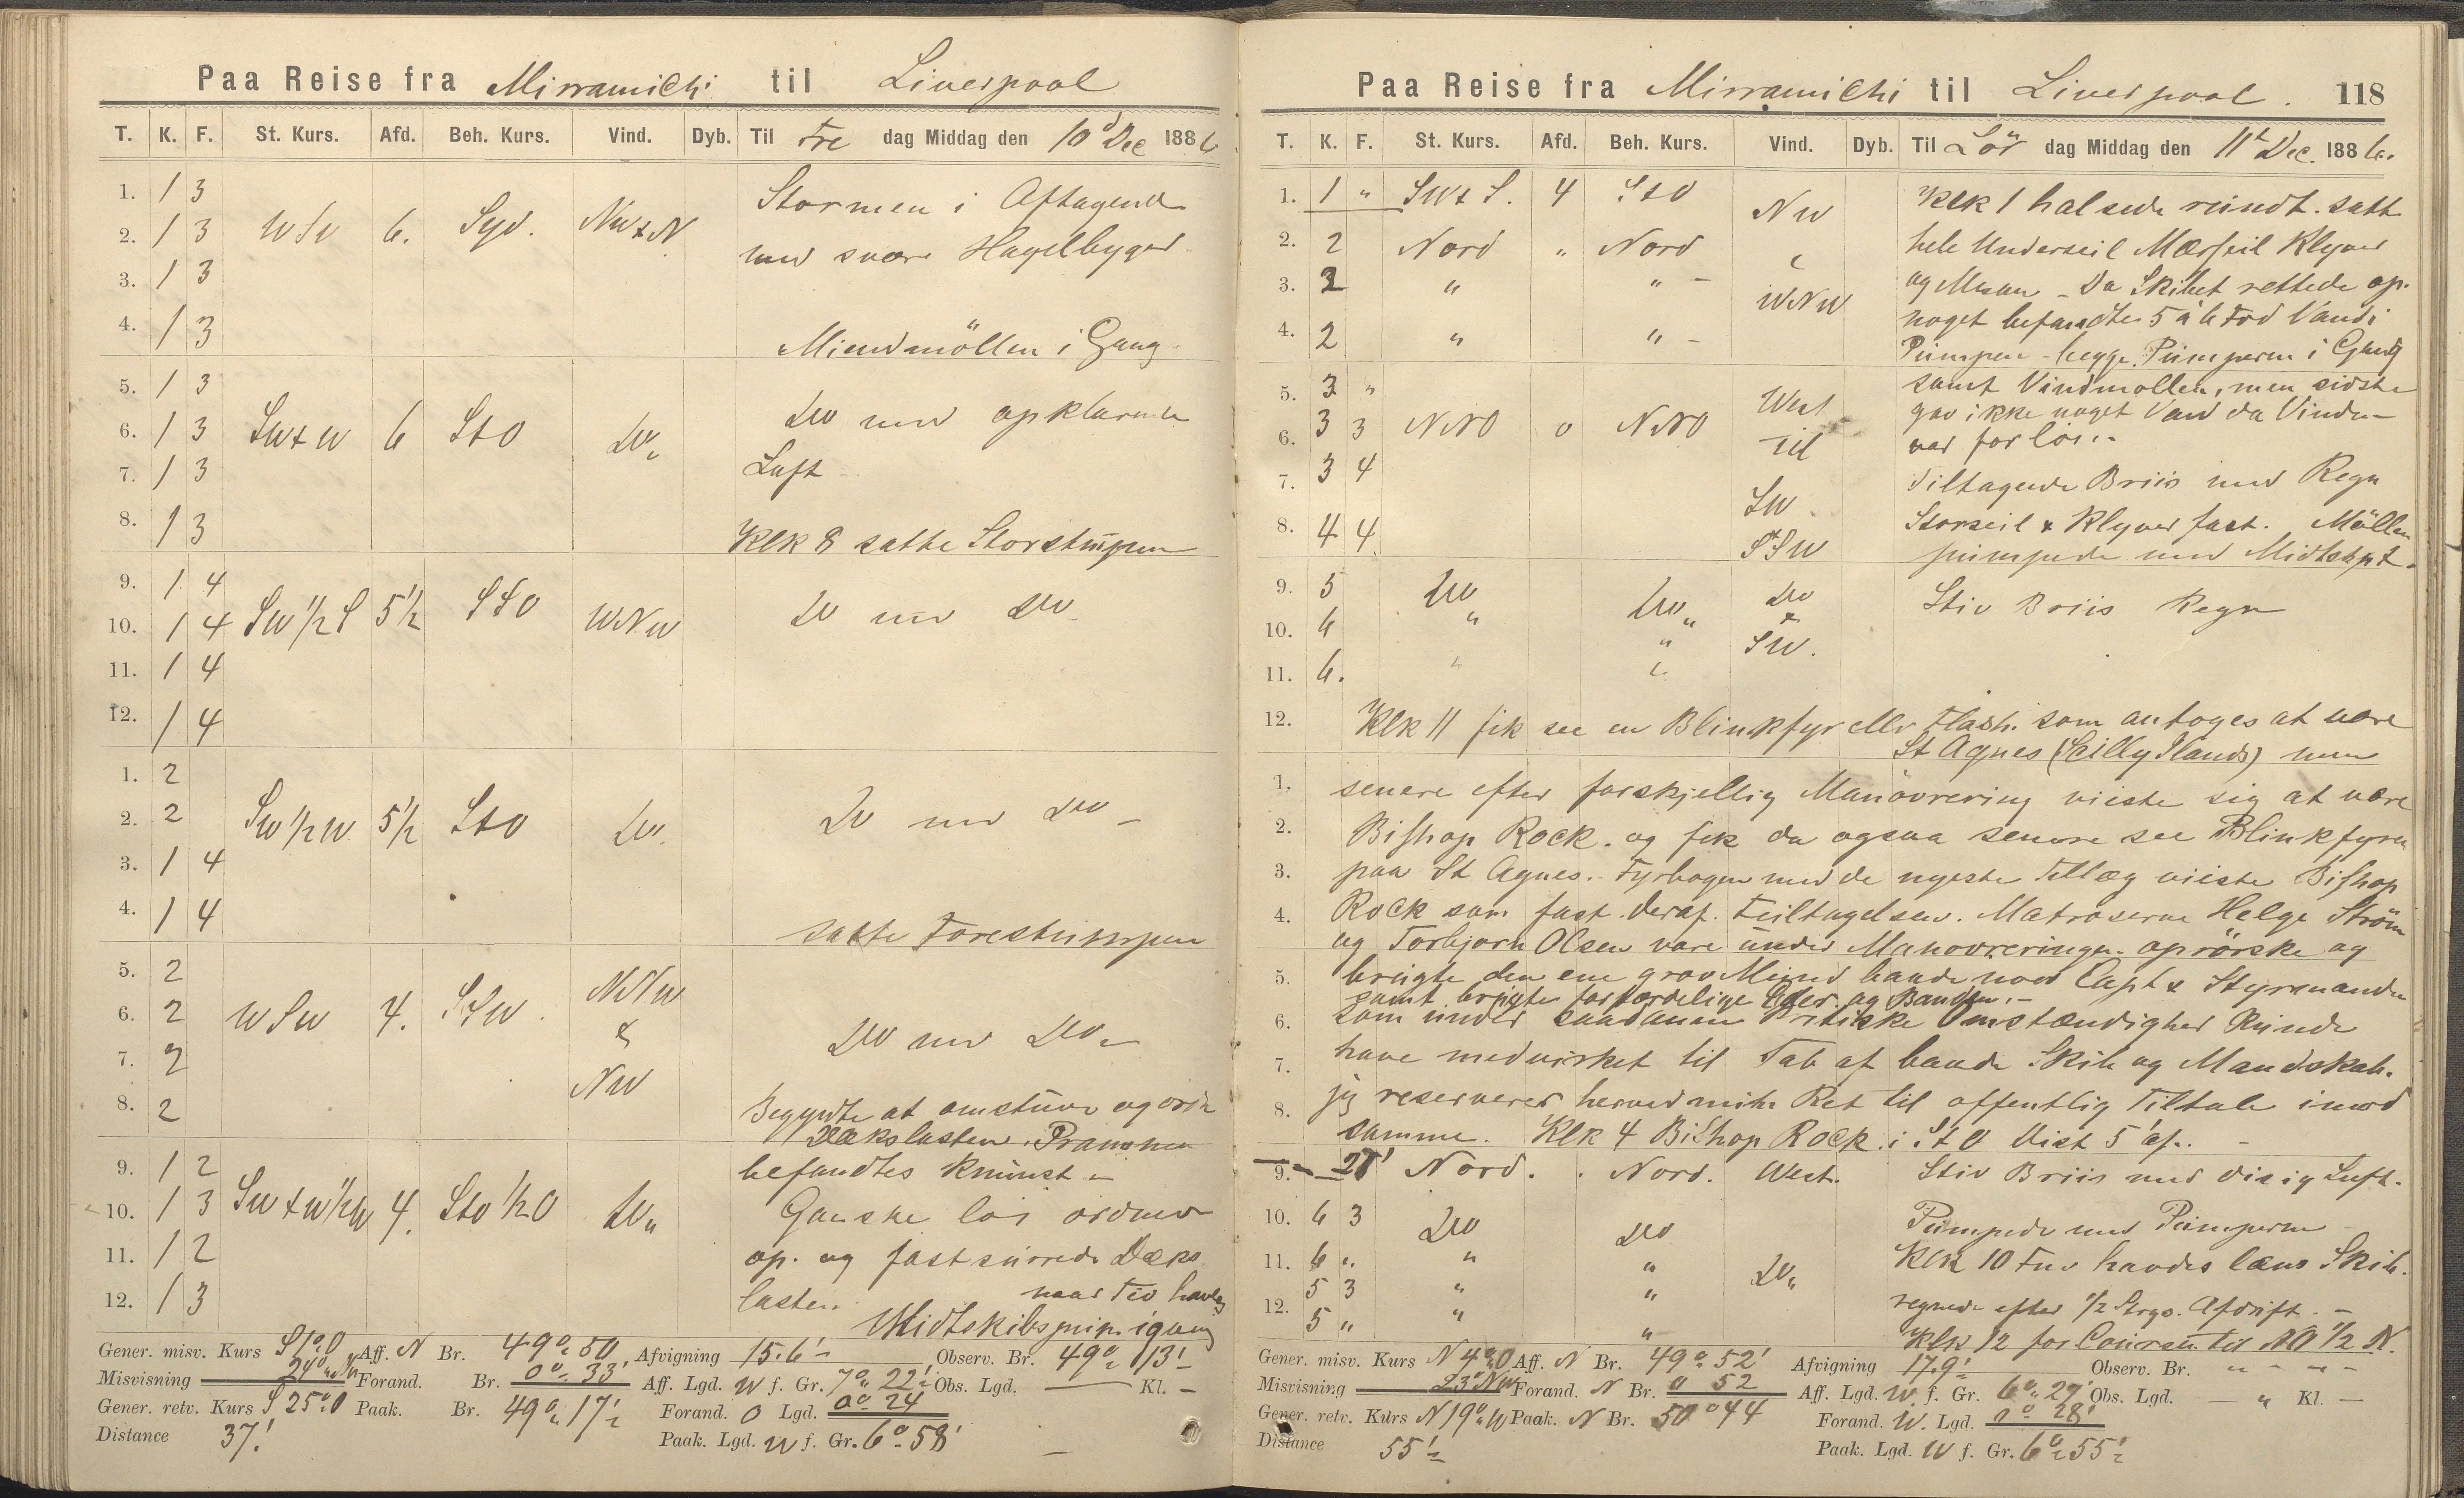 Paa Reise fra Mirramichi til Liverpool
T. K. F. St. Kurs. Afd. Beh. Kurs. Vind. Dyb. Til Fre dag Middag den 10d Dec 1886
1. 1 3 Stormen i Aftagende
2. 1 3 WSW 6. Syd. NWxN med svære Hagelbyger
3. 1 3
4. 1 3 Miendmöllen i Gang
5. 1 3
6. 1 3 SWxW 6 StO Do. Do med opklarende
7. 1 3 Luft
8. 1 3 Klk 8 satte Storstumpen
9. 1 4
10. 1 4 SW 1/2 S 5 1/2 SSO WNW Do med Do
11. 1 4
12. 1 4
1. 2
2. 2 SW 1/2 W 5 1/2 StO Do. Do med Do -
3. 1 4
4. 1 4 satte Forestumpen
5. 2 NNW
6. 2 WSW 4. SSW & Do med Do
7. 2 NW
8. 2 Begyndte at omstuve og ordne
Dækslasten. Prammen
9. 1 2 befandtes knuust -
10. 1 3 SWxW 1/2 W 4. StO 1/2 O Do " Ganske löi ordner
11. 1 2 op. og fastsurrede Dæks
12. 1 3 lasten.
Midtskibspump. igang
Gener. misv. Kurs S 1° O Aff. N Br. 49° 50 Afvigning 15.6' Observ. Br. 49° 13'
Misvisning 24° NW Forand. Br. 0° 33' Aff. Lgd. W f. Gr. 7° 22' Obs. Lgd. — Kl. -
Gener. retv. Kurs S 25° O Paak. Br. 49° 17' Forand. O Lgd. 0° 24
Distance 37' Paak. Lgd. W f. Gr. 6° 58'
Paa Reise fra Mirramichi til Liverpool. 118
T. K. F. St. Kurs. Afd. Beh. Kurs. Vind. Dyb. Til Lör dag Middag den 11t Dec. 1886.
1. 1 " SWtS. 4 StO NW Klk 1 halsede rundt. satte
2. 2 Nord " Nord hele Underseil Mærsseil Klyver
3. 2 " " - WNW og Mesan - Da Skibet rettede op.
4. 2 " " - noget befandtes 5 a 6 Fod Vand i
Pumpen - begge Pumperne i Gang
5. 3 " West samt Vindmøllen, men sidste
6. 3 3 NNO 0 NNO til gav ikke noget Vand da Vinden
var for löi.
7. 3 4 SW Tiltagende Briis med Regn
Storseil & Klyver fast. Möllen
8. 4 4 SSW pumpede med Midtskpt.
9. 5 Do Do Do Stiv Briis Regn
10. 6 " " &
11. 6. " " SW.
12. Klk 11 fik see en Blinkfyr eller Flash. som antoges at være
St Agnes (Scilly Ilands) men
1. senere efter forskjellig Manövrering viiste sig at være
2. Bishop Rock. og fik da ogsaa senere see Blinkfyren
3. paa St Agnes. Fyrbogen med de nyeste Tillæg viiste Bishop
4. Rock som fast. deraf. Feiltagelsen. Matroserne Helge Ström
og Torbjorn Olsen vare under Manovreringen oprörske og
5. brugte den ene grov Mund baade mod Capt & Styrmanden
samt brugte forfærdelige Eder. og Banden. -
6. som under saadanne Kritiske Omstændigheder Kunde
7. have medvirket til Tab af baade Skib og Mandskab.
8. jeg reserverer herved mitn Ret til offentlig Tiltale imod
samme. Klk 4 Bishop Rock. i StO Dist 5' af. -
9. 28' Nord. Nord. West. Stiv Briis med disig Luft.
10. 6 3 Do Do Pumpede med Pumperne
11. 6 " " " Do " Klk 10 Fuv havdes læns Skib.
5 3 " "
12. 5 " " " regnede efter 1/2 Stregs. Afdrift. -
Klk 12 for Coursen til NO 1/2 N.
Gener. misv. Kurs N 4° O Aff. N Br. 49° 52' Afvigning 17.9' Observ. Br. " - " -
Misvisning 23° NW Forand. N Br. 0 52 Aff. Lgd. W. f. Gr. 6° 27' Obs. Lgd. — " Kl. —
Gener. retv. Kurs N 19° W Paak. N Br. 50° 44 Forand. W. Lgd. 0° 28'
Distance 55' Paak. Lgd. W f. Gr. 6° 55'